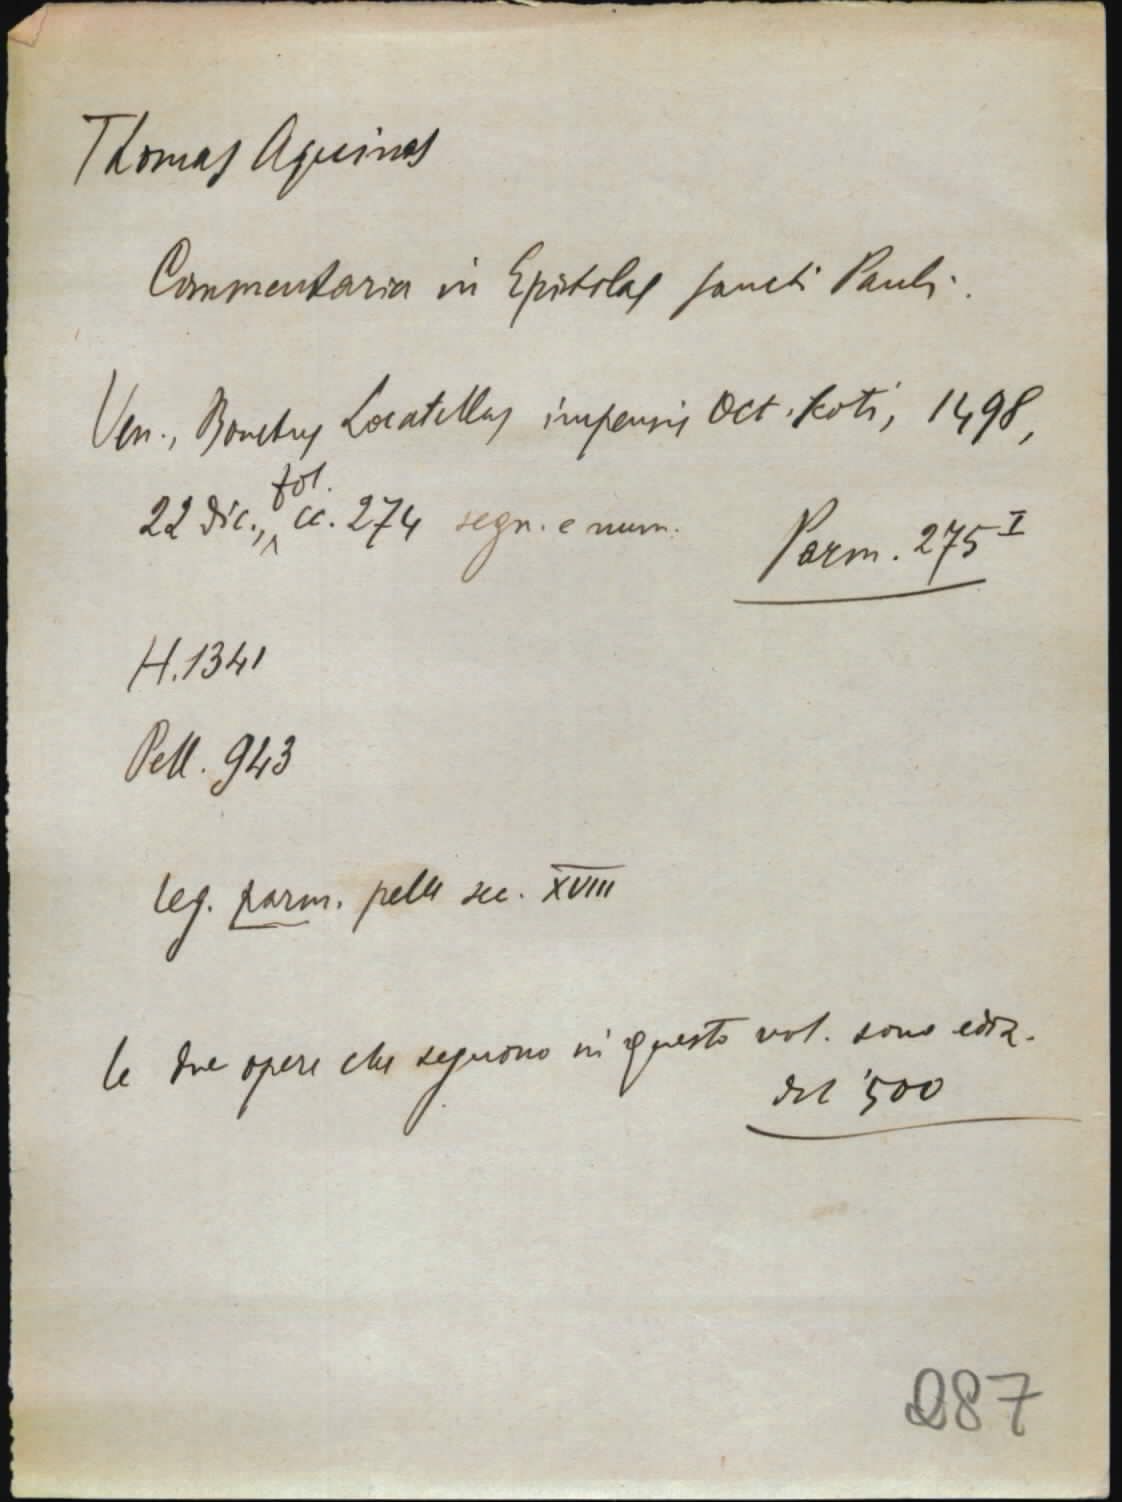 Thomas Aquinas
Commentaria in Epistolas sancti Pauli.
Ven., Bonetus Locatellus impensis Oct. Scoti, 1498,
22 dic., fol. cc. 274 segn. e num.
Parm. 275 I
H. 1341
Pell. 943
leg. parm. pelle sec. XVIII
le due opere che seguono in questo vol. sono ediz.
del '500
287